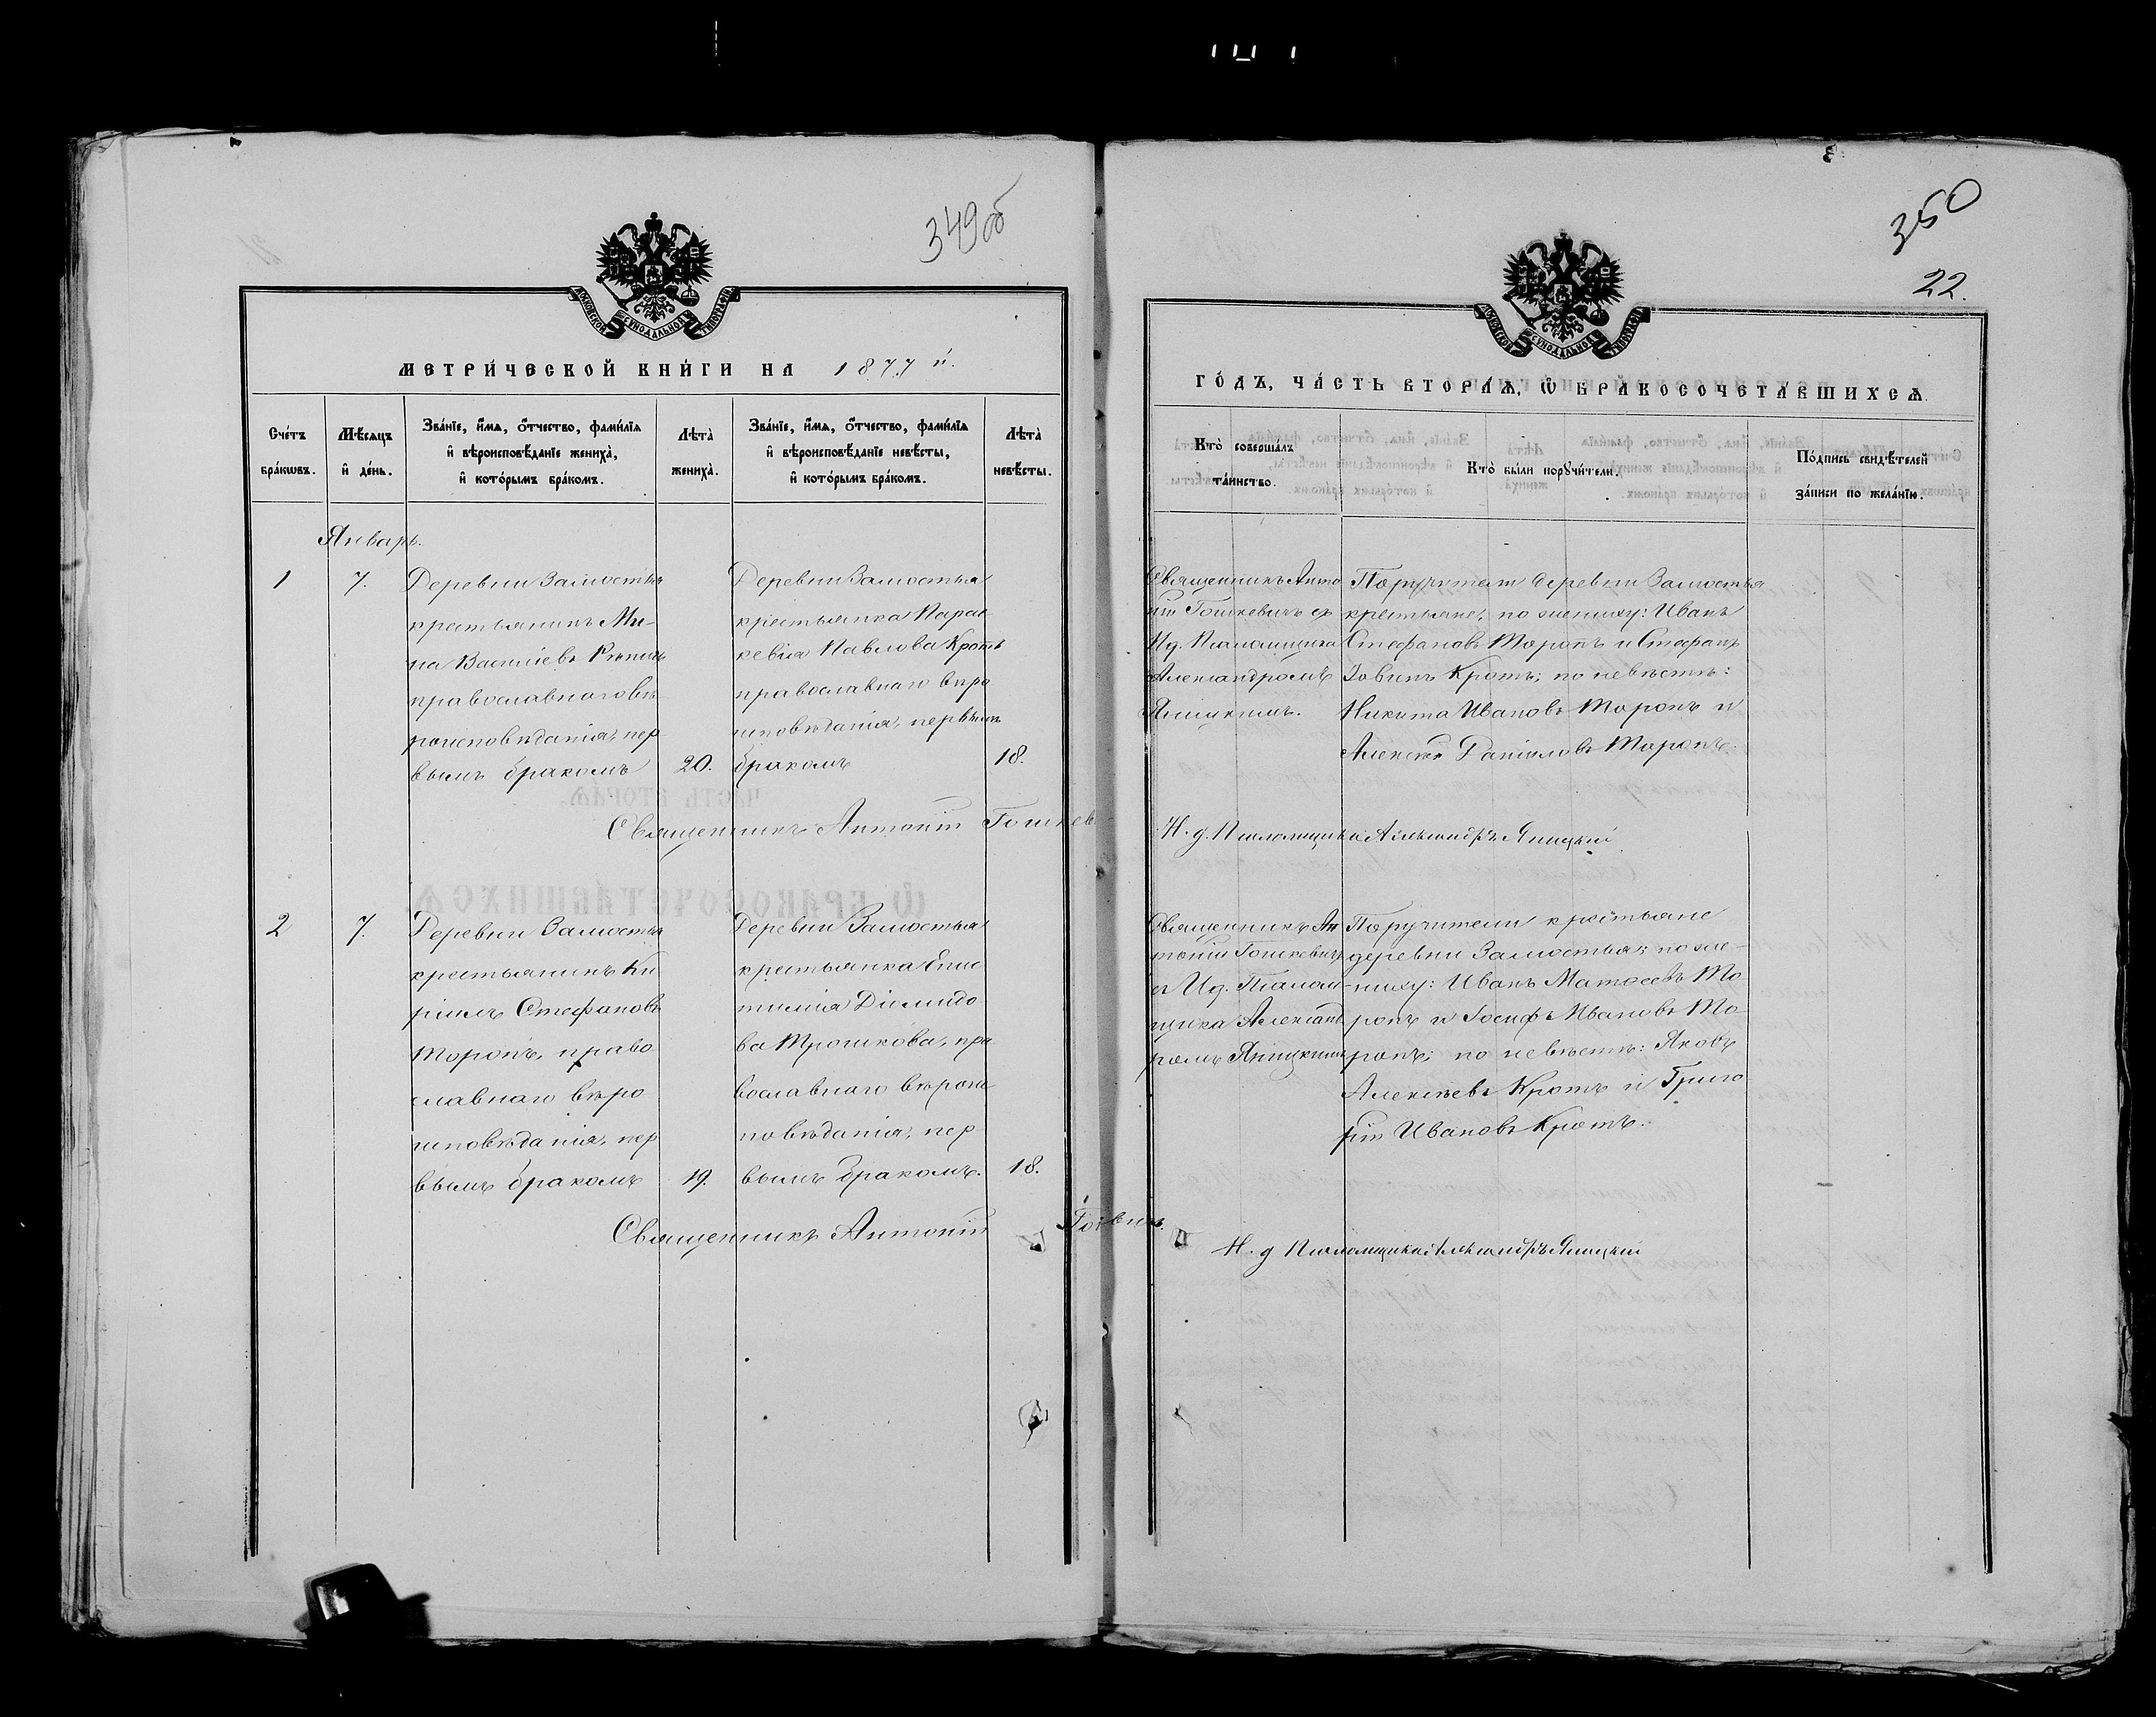 349 об
МОСКОВСКОЙ СѴНОДАЛЬНОЙ ТИПОГРАФІИ
МЕТРИ́ЧЕСКОЙ КНИ́ГИ НА 1877 й.
Сче́тъ бра́кѡвъ.
Мѣ́сяцъ и҆ де́нь.
Зва́ніе, и҆́мя, ѻ҆́тчество, фами́лія
и҆ вѣроисповѣ́даніе жениха̀,
и҆ кото́рымъ бра́комъ.
Лѣта̀ жениха̀.
Зва́ніе, и҆́мя, ѻ҆́тчество, фами́лія
и҆ вѣроисповѣ́даніе невѣ́сты,
и҆ кото́рымъ бра́комъ.
Лѣта̀ невѣ́сты.
Январь.
1
7.
Деревни Замостья
крестьянинъ Ми-
на Василіевъ
православнаго вѣ
роисповѣданія, пер
вымъ бракомъ
20.
Деревни Замостья
крестьянка Парас
кевія Павлова Кротъ
православнаго вѣро
исповѣданія, первымъ
бракомъ
18.
Священникъ Антоній Гошкев
2
7.
Деревни Замостья
крестьянинъ Ки
риллъ Стефановъ
Торопъ, право
славнаго вѣро
исповѣданія, пер
вымъ бракомъ
19.
Деревни Замостья
крестьянка Епис
тимія Діомидо
ва Трошкова, пра
вославнаго вѣроис
повѣданія, пер
вымъ бракомъ.
18.
Священникъ Антоній
350
22.
МОСКОВСКОЙ СѴНОДАЛЬНОЙ ТИПОГРАФІИ
ГО́ДЪ, ЧА́СТЬ ВТОРА́Я, Ѿ БРАКОСОЧЕТА́ВШИХСЯ.
Кто̀ соверша́лъ
та́инство.
Кто̀ бы́ли порꙋчи́тели.
По́дпись свидѣ́телей
за́писи по жела́нїю.
Священникъ Анто
ній Гошкевичъ съ
И.д. Псаломщика
Александромъ
Яницкимъ.
Поручители деревни Замостья
крестьяне, по жениху: Иванъ
Стефановъ Торопъ и Стефанъ
Іовинъ Кротъ; по невѣстѣ:
Никита Ивановъ Торопъ и
Алексѣй Даніиловъ Торопъ.
И. д. Псаломщика Александръ Яницкій
Священникъ Ан
тоній Гошкевичъ
съ И.д. Псалом-
щика Александ
ромъ Яницкимъ
Поручители крестьяне
деревни Замостья; по же-
ниху: Иванъ Матѳеевъ То
ропъ и Іосифъ Ивановъ То-
ропъ; по невѣстѣ: Яковъ
Алексѣевъ Кротъ и Григо
рій Ивановъ Кротъ.
И. д Псаломщика Александръ Яницкій